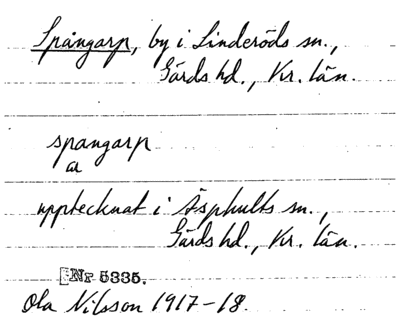 Spångarp, by i Linderöds sn.,
Gärds hd., Kr. län.
spangarp
a
upptecknat i Äsphults sn.,
Gärds hd., Kr. län.
Nr 5335.
Ola Nilsson 1917-18.